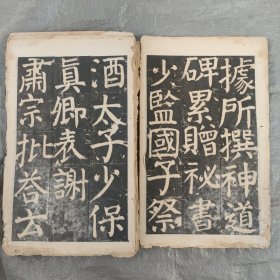 據所撰神道
碑累贈祕書
少監國子祭
酒太子少保
真卿表謝
肅宗批答云